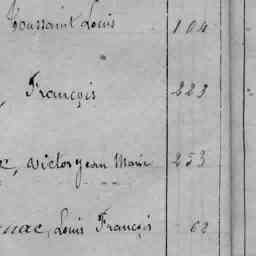 Toussaint Louis 104
François 223
, Victor Jean Marie 253
nac, Louis François 62